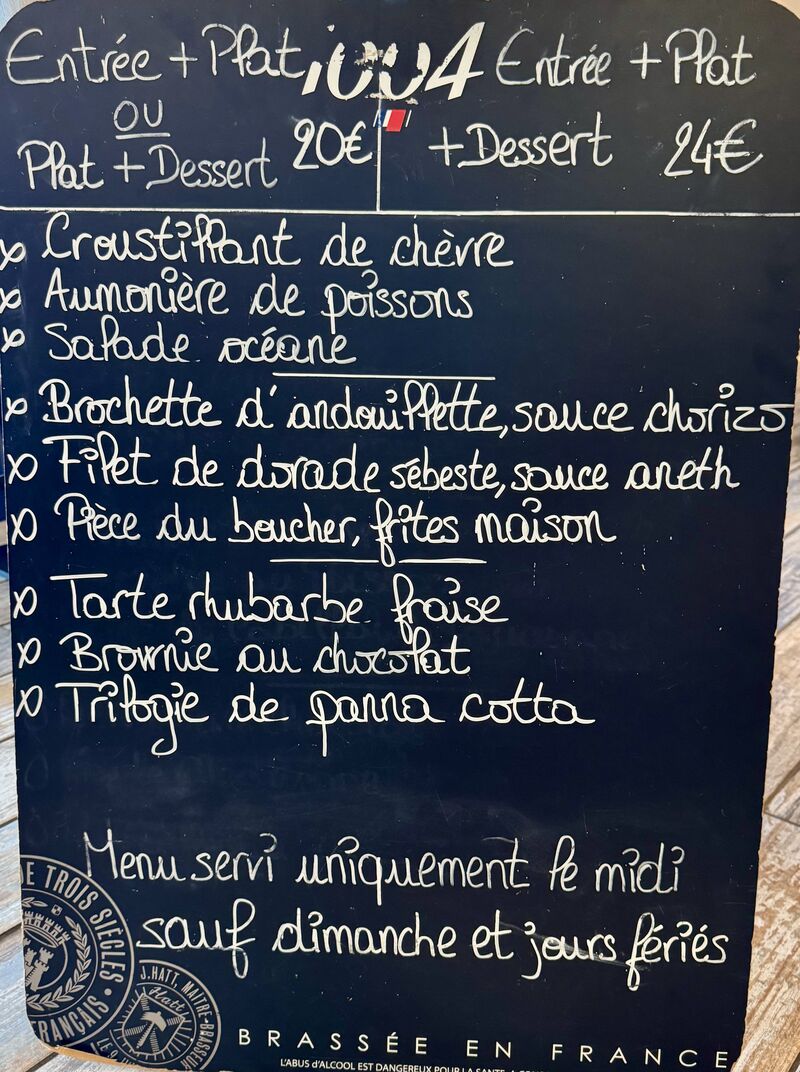 Entrée + Plat
OU
Plat + Dessert 20€
Entrée + Plat
+ Dessert 24€
x Croustillant de chèvre
x Aumonière de poissons
x Salade océane
x Brochette d'andouillette, sauce chorizo
x Filet de dorade sébeste, sauce aneth
x Pièce du boucher, frites maison
x Tarte rhubarbe fraise
x Brownie au chocolat
x Trilogie de panna cotta
Menu servi uniquement le midi
sauf dimanche et jours fériés
DE TROIS SIÈCLES
FRANÇAIS
J.HATT, MAÎTRE-BRASSEUR
Hatt
BRASSÉE EN FRANCE
L'ABUS d'ALCOOL EST DANGEREUX POUR LA SANTÉ